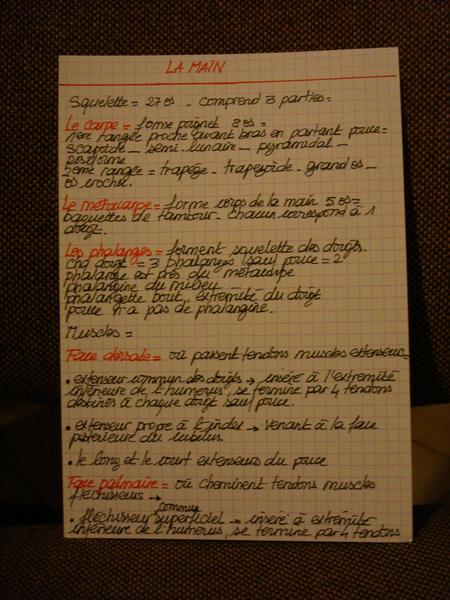 LA MAIN
Squelette = 27 os - comprend 3 parties =
Le carpe = forme poignet 8 os =
1ère rangée proche avant bras en partant pouce =
scapoïde - semi-lunaire - pyramidal -
pisiforme
2ème rangée = trapèze - trapezoïde - grand os -
os crochu.
Le métacarpe = forme corps de la main 5 os =
baguettes de tambour - chacun correspond à 1
doigt.
Les phalanges = forment squelette des doigts.
chq doigt = 3 phalanges sauf pouce = 2
phalange est près du métacarpe
phalangine du milieu
phalangette bout, extrémité du doigt
pouce n'a pas de phalangine.
Muscles =
Face dorsale = où passent tendons muscles extenseurs
• extenseur commun des doigts → inséré à l'extrémité
inférieure de l'humerus, se termine par 4 tendons
destinés à chaque doigt sauf pouce.
• extenseur propre à l'index → venant à la face
postérieure du cubitus.
• le long et le court extenseurs du pouce
Face palmaire = où cheminent tendons muscles
fléchisseurs →
• fléchisseur commun superficiel → inséré à extrémité
inférieure de l'humerus, se termine par 4 tendons